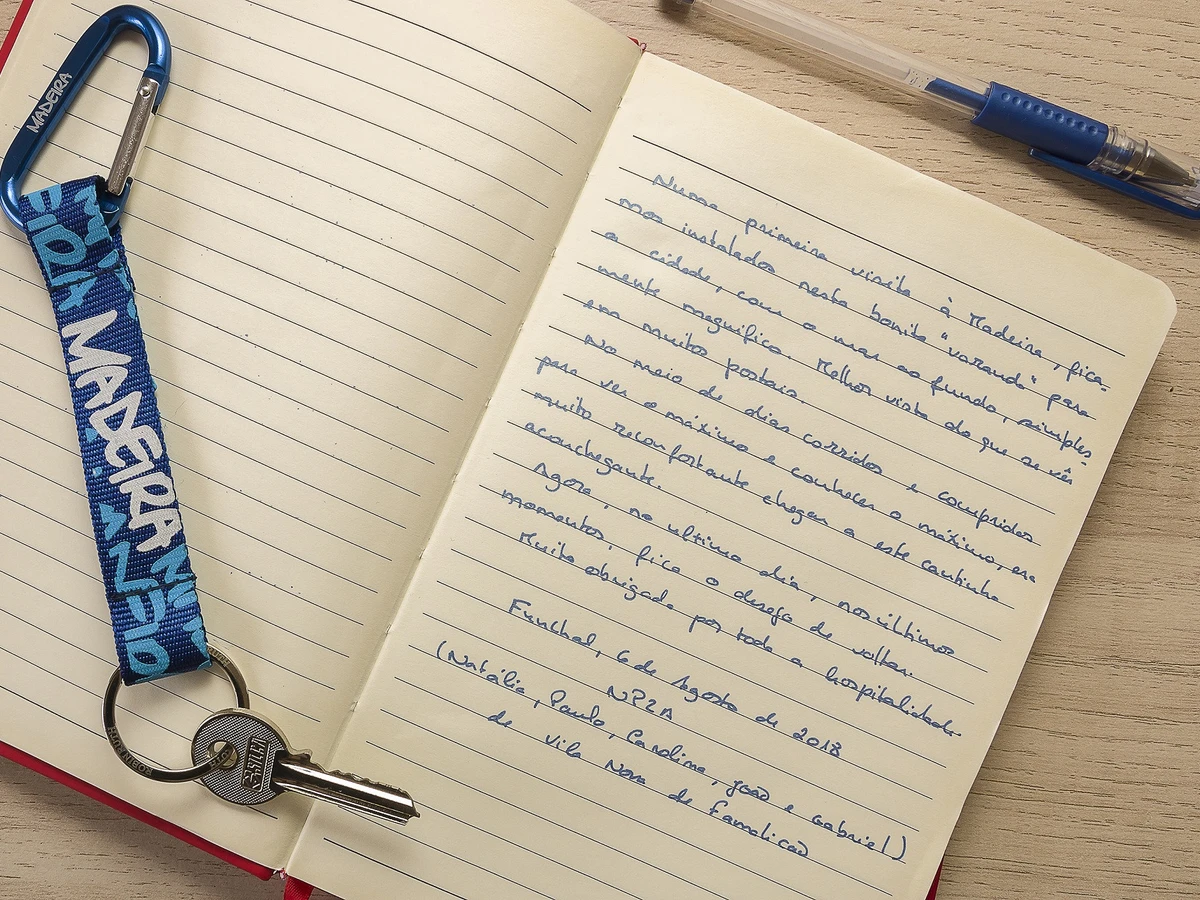 MADEIRA
MADEIRA
Numa primeira visita à Madeira, fica-
mos instalados nesta bonita "varanda" para
a cidade, com o mar ao fundo, simples-
mente magnífico. Melhor vista do que se vês
em muitos postais.
No meio de dias corridos e compridos
para ver o máximo e conhecer o máximo, era
muito reconfortante chegar a este cantinho
aconchegante.
Agora, no ultimo dia, nos últimos
momentos, fica o desejo de voltar.
Muito obrigada por toda a hospitalidade.
Funchal, 6 de Agosto de 2018
NP2A
(Natália, Paulo, Carolina, João e Gabriel)
de Vila Nova de Famalicão